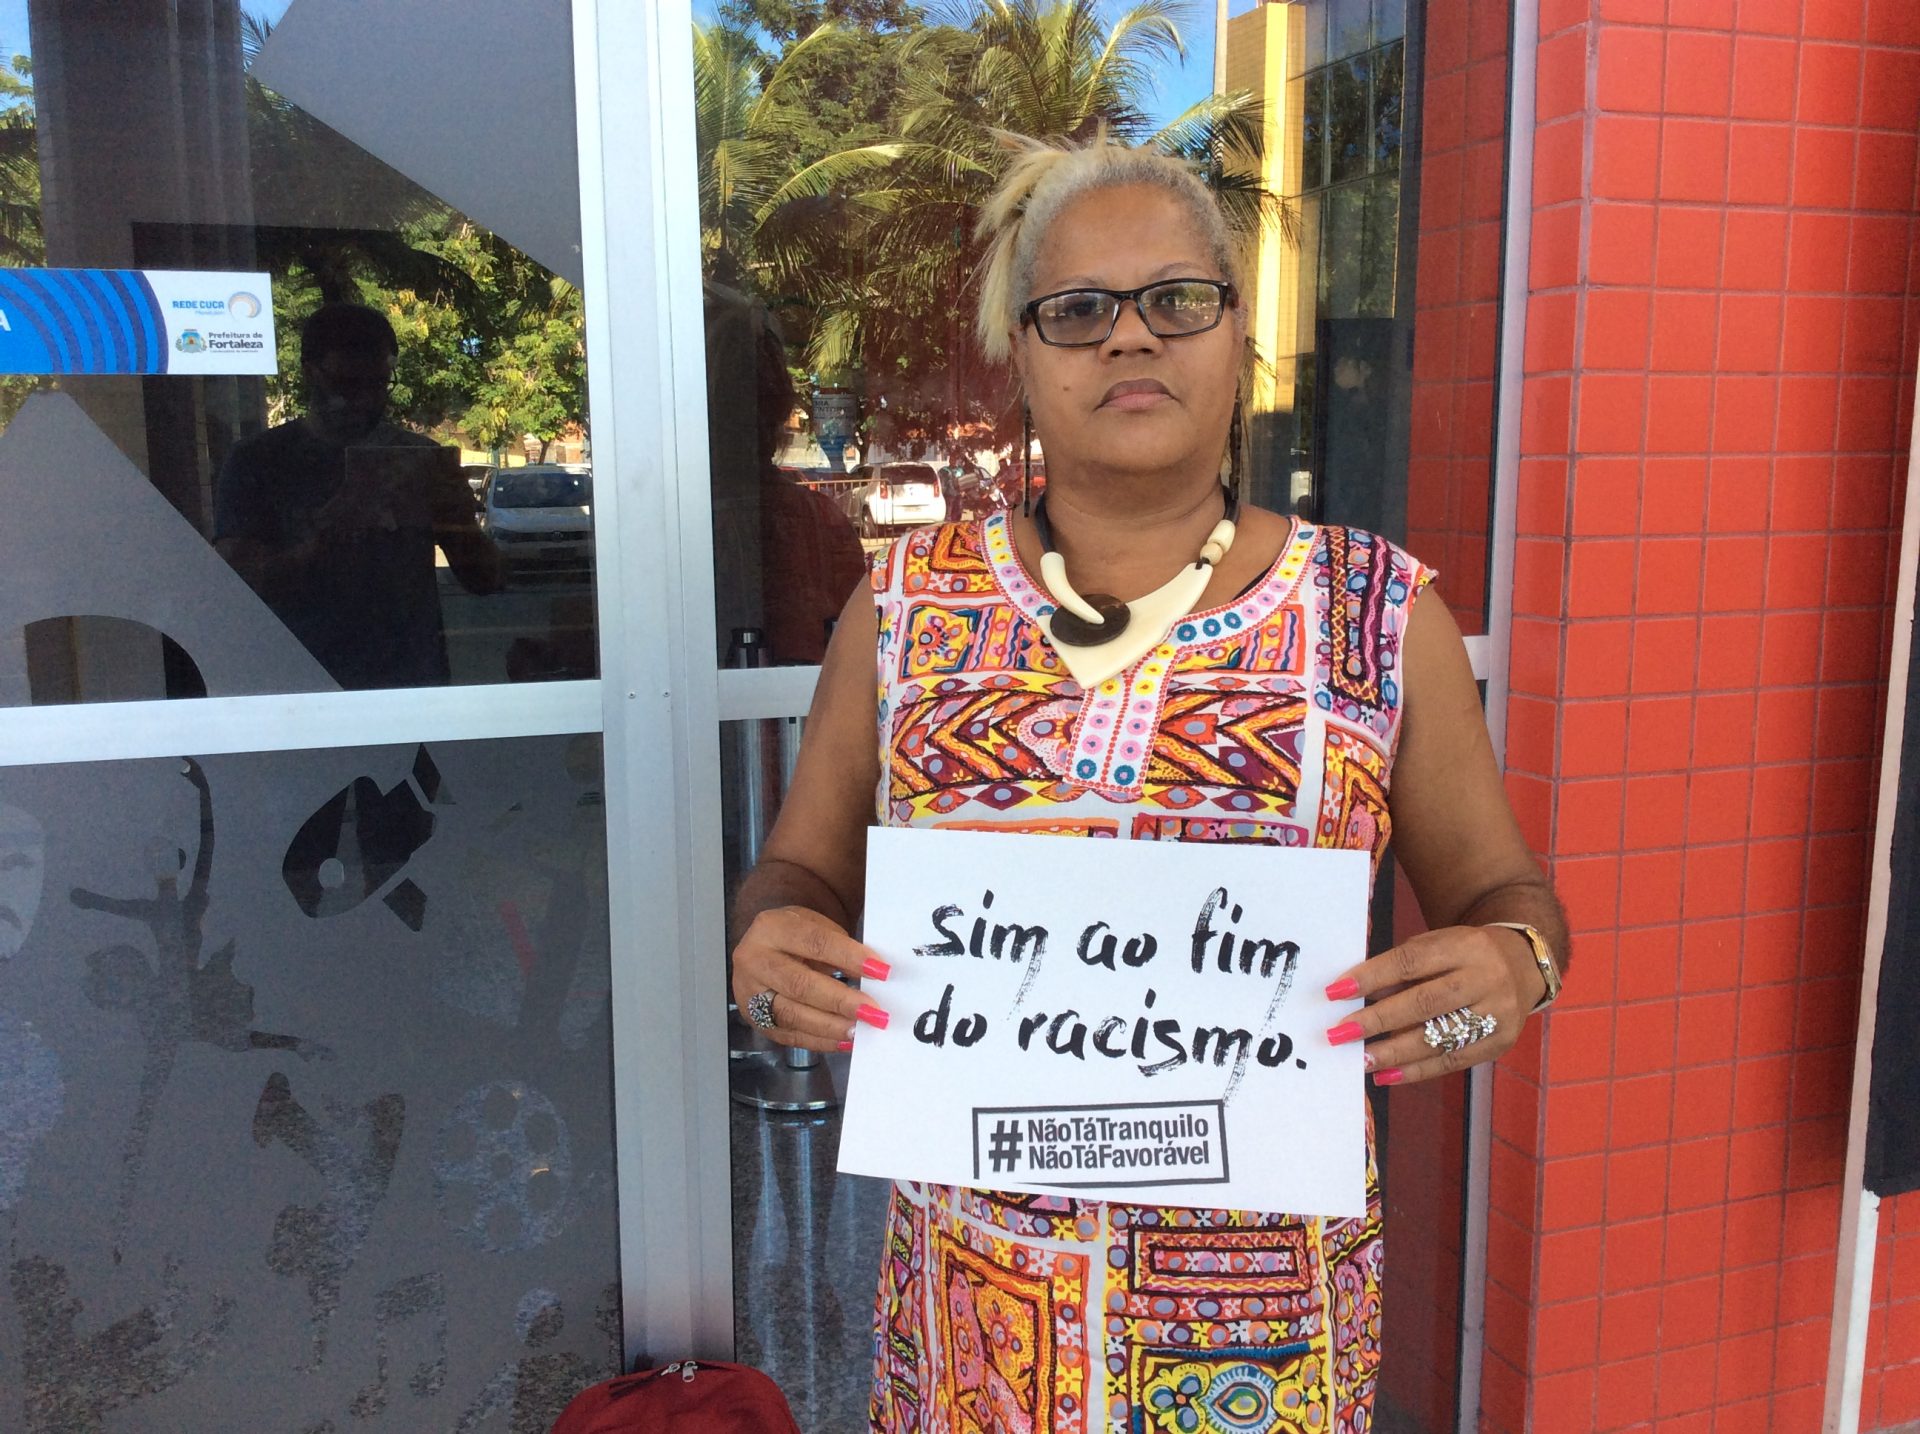 A
REDE CUCA
Prefeitura de
Fortaleza
sim ao fim
do racismo.
#NãoTáTranquilo
NãoTáFavorável